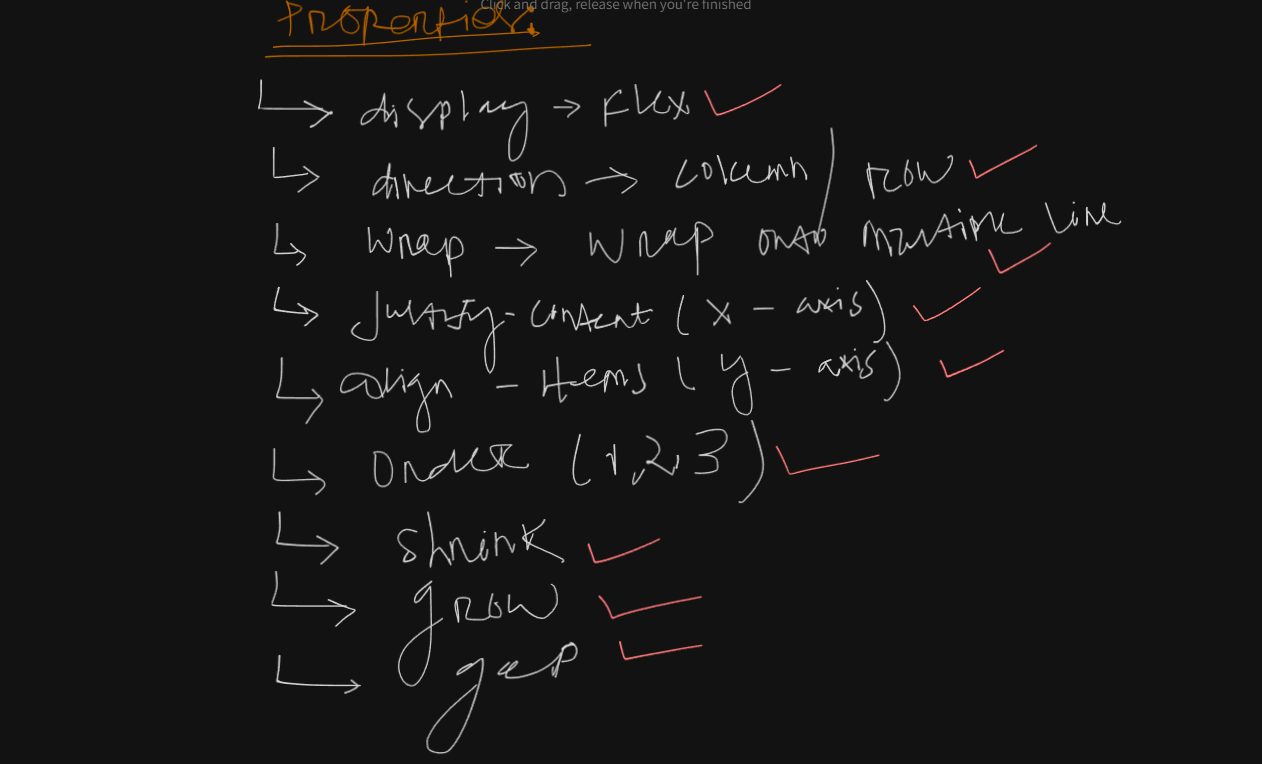 Click and drag, release when you're finished
Properties.
↳ display → Flex ✓
↳ direction → column / row ✓
↳ wrap → wrap onto multiple line ✓
↳ justify-content (x - axis) ✓
↳ align - items (y - axis) ✓
↳ Order (1,2,3) ✓
↳ shrink ✓
↳ grow ✓
↳ gap ✓